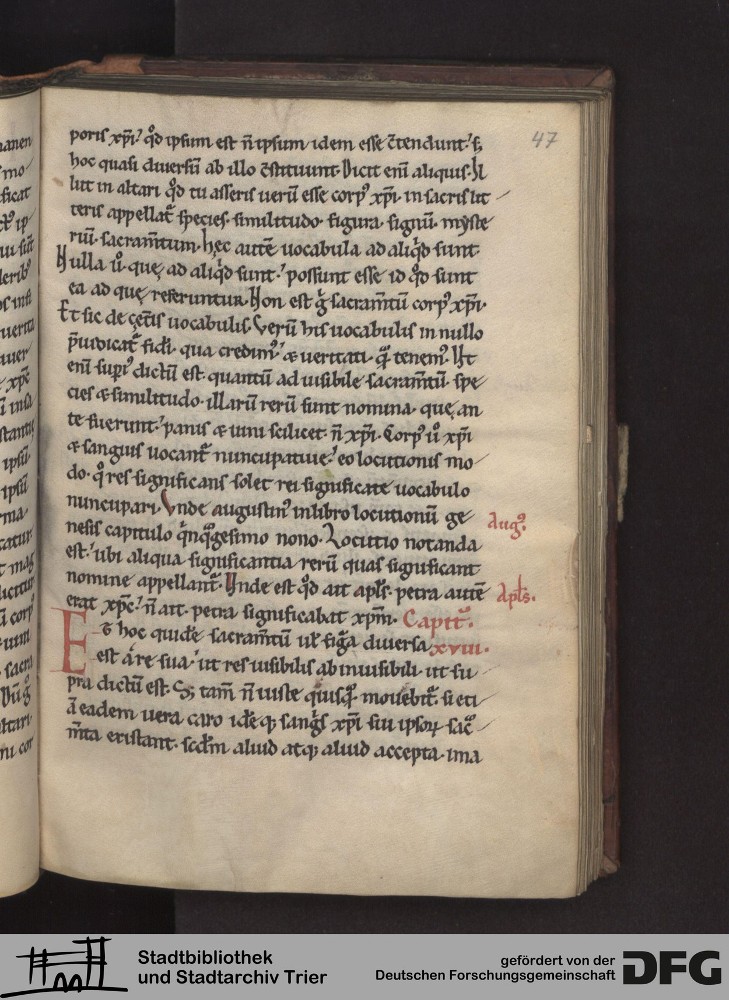 47
poris xp̄i. qd̊ ipsum est n̄ ipsum idem esse c̄tendunt. s;
hoc quasi diuersū ab illo c̄stituunt. Dicit enī aliquis. Il
lut in altari qd̊ tu asseris uerū esse corp᷒ xp̄i. in sacris lit
teris appellat̄ species. similitudo. figura. signū. myste
riū. sacram̄tum. hęc autē uocabula ad aliq̊d sunt.
Nulla ů. quę ad aliq̊d sunt. possunt esse id qd̊ sunt
ea ad quę referuntur. Non est g̊ sacram̄tū corp᷒ xp̄i.
Et sic de cęt̄is uocabulis. Verū his uocabulis in nullo
p̄iudicat̄ fidi. qua credim᷒. & ueritati. quā tenem᷒. Ut
enī sup̄i᷒ dictū est. quantū ad uisibile sacram̄tū. spe
cies & similitudo. illarū rerū sunt nomina. quę an
te fuerunt. panis & uini scilicet. n̄ xp̄i. Corp᷒ ů xp̄i
& sanguis uocant̄ nuncupatiue. eo locutionis mo
do. q̊ res significans solet rei significatę uocabulo
nuncupari. Vnde augustin᷒ in libro locutionū ge
nesis capitulo q̄nq̊gesimo nono. Locutio notanda
est. ubi aliqua significantia rerū quas significant
nomine appellant̄. Unde est qd̊ ait apl̄s. petra autē
erat xp̄c. n̄ ait. petra significabat xp̄m. Capit̊.
Augᷤ.
Apl̄s.
Et hoc quidē sacram̄tū ul̄ fig̊a diuersa xviii.
est a re sua. ut res uisibilis ab inuisibili. ut su
pra dictū est. S; tam̄ n̄ iuste q̊uisq̊ mouebit̄. si eti
ā eadem uera caro idēq; sang̊s xp̄i sui ipsoꝝ sac̊
m̄ta existant. scd̄m aliud atq; aliud accepta. ima
Stadtbibliothek
und Stadtarchiv Trier
gefördert von der
Deutschen Forschungsgemeinschaft
DFG